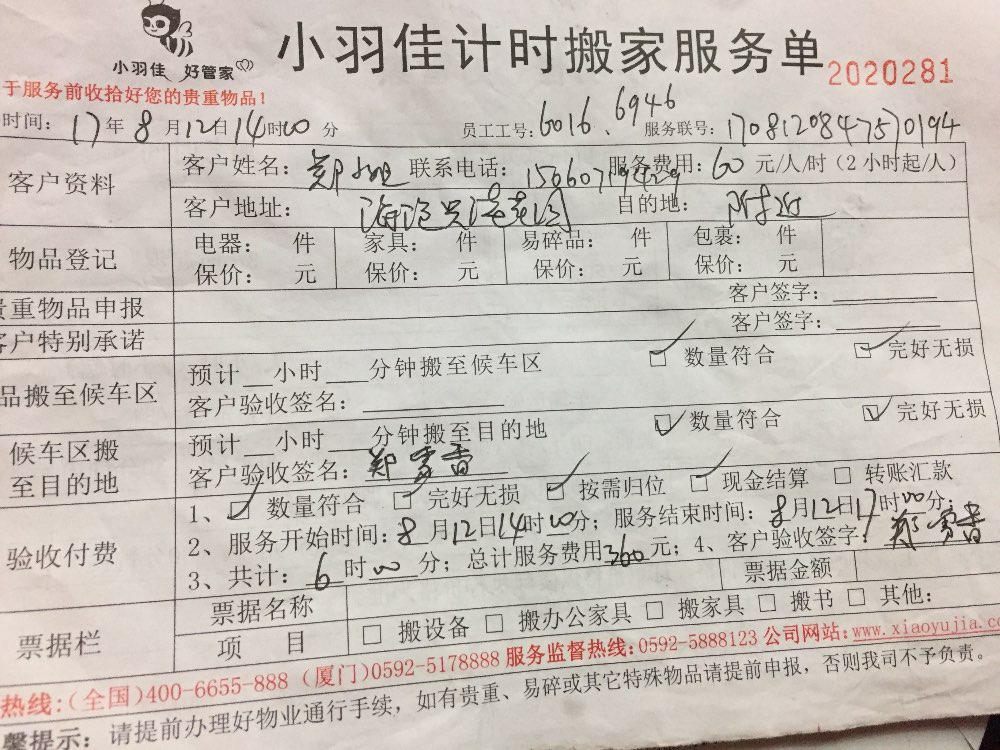 小羽佳 好管家
小羽佳计时搬家服务单
2020281
于服务前收拾好您的贵重物品！
时间：17年8月12日14时00分 员工工号：6016、6946 服务联号：1708120847570194
客户资料
客户姓名：郑小姐 联系电话： 服务费用：60元/人/时（2小时起/人）
客户地址：海沧兴港花园 目的地：附近
物品登记
电器： 件 家具： 件 易碎品： 件 包裹： 件
保价： 元 保价： 元 保价： 元 保价： 元
贵重物品申报 客户签字：
客户特别承诺 客户签字：
品搬至候车区
预计__小时___分钟搬至候车区 数量符合 完好无损
客户验收签名：
候车区搬至目的地
预计__小时___分钟搬至目的地 数量符合 完好无损
客户验收签名：郑雪香
验收付费
1、数量符合 完好无损 按需归位 现金结算 转账汇款
2、服务开始时间：8月12日14时00分；服务结束时间：8月12日17时00分；
3、共计：6时00分；总计服务费用360元；4、客户验收签字：郑雪香
票据栏
票据名称 票据金额
项 目 搬设备 搬办公家具 搬家具 搬书 其他：
热线：（全国）400-6655-888（厦门）0592-5178888 服务监督热线：0592-5888123 公司网站：www.xiaoyujia.co
馨提示：请提前办理好物业通行手续，如有贵重、易碎或其它特殊物品请提前申报，否则我司不予负责。